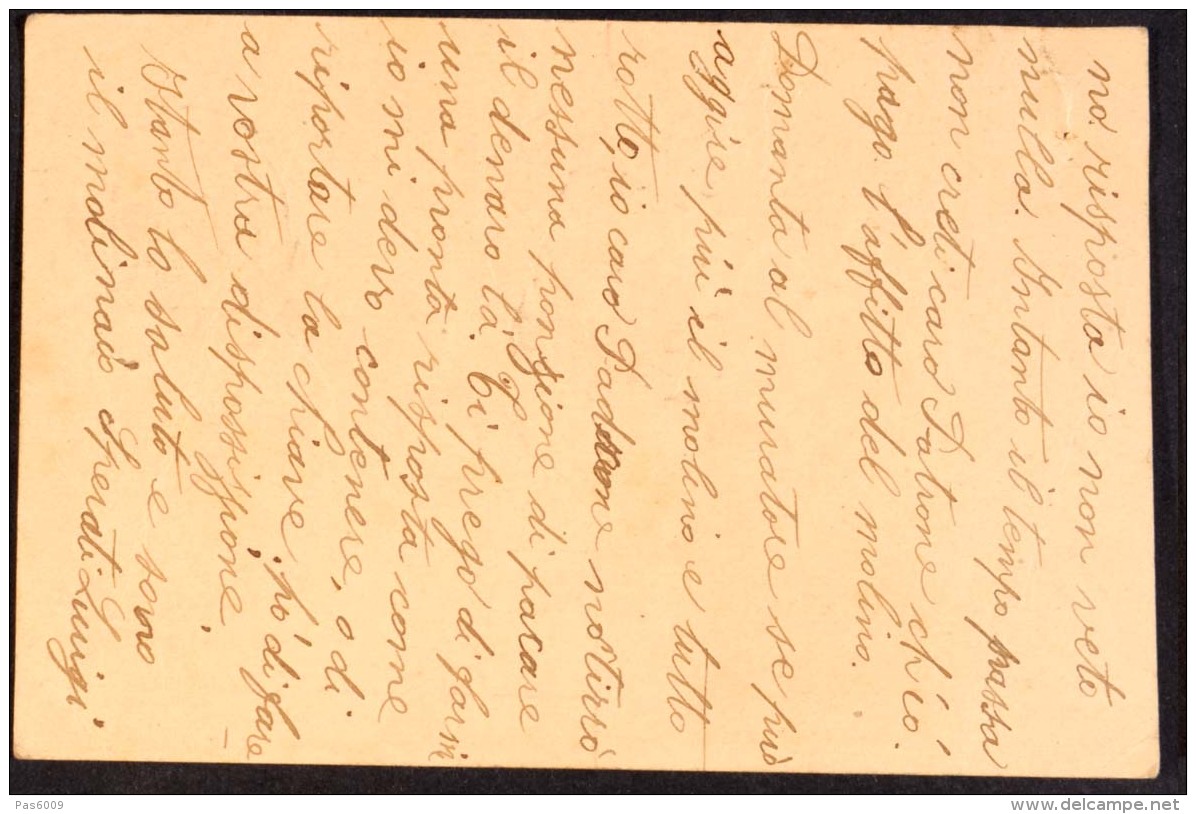 no risposta io non veto
nulla. Intanto il tempo passa
non creti caro Patrone ch'io.
pago l'affitto del molino.
Domanta al muratore se può
aggire più il molino e tutto
rotto, io caro Paddone nostirrò
nessuna ponsione di pacare
il denaro là. Ci prego di farmi
una pronta risposta come
io mi devo contenere, o di
riportare la chiave, pò di fare
a vostra dispossizzione.
Stanto lo saluto e sono
il molinaio Sperati Luigi
Pas6009
www.delcampe.net